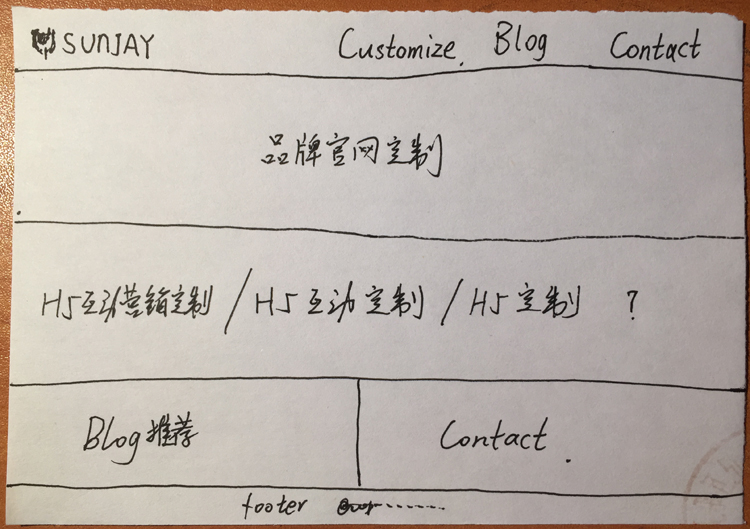 SUNJAY Customize. Blog Contact
品牌官网定制
H5互动营销定制 / H5互动定制 / H5定制 ?
Blog推荐 Contact.
footer